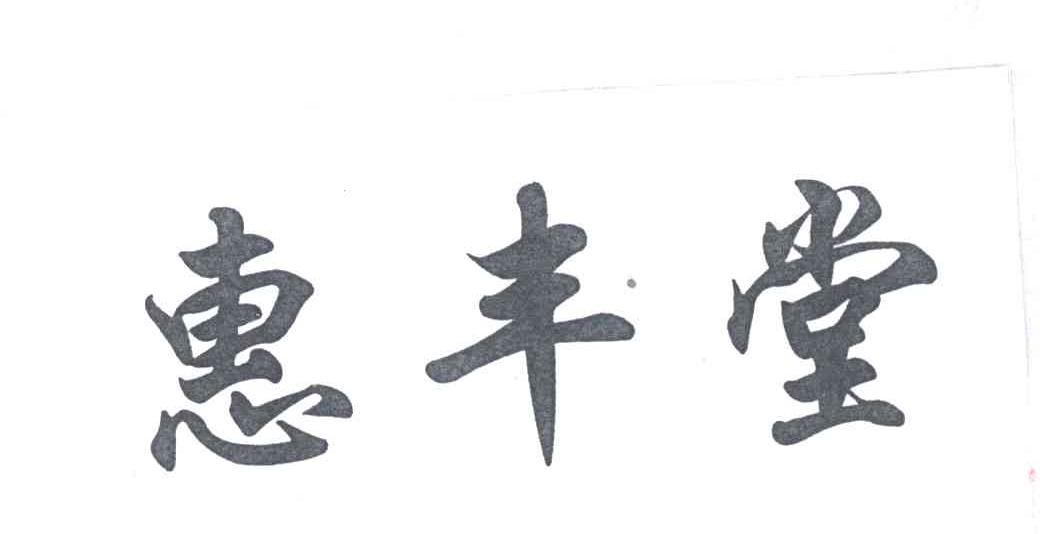 惠丰堂